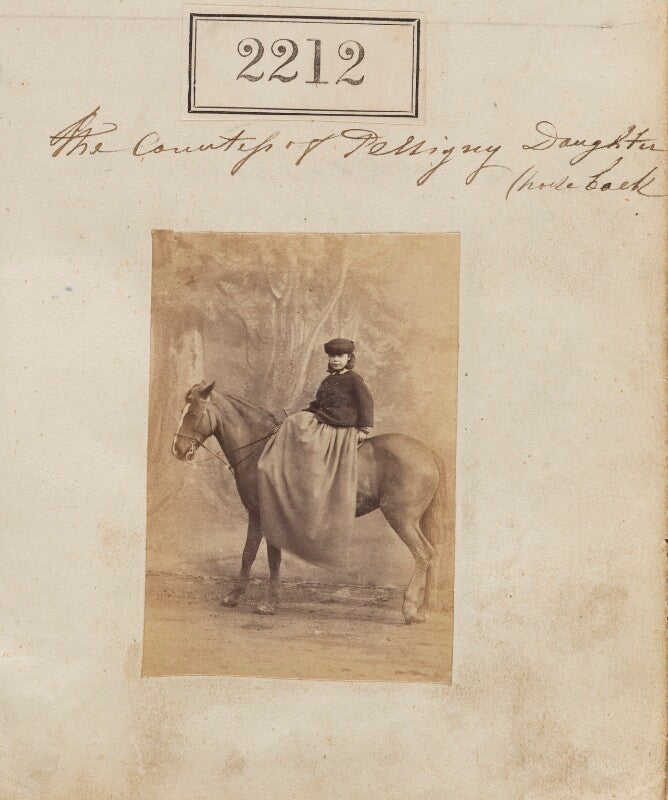 2212
The Countess of Persigny Daughter
(horse back